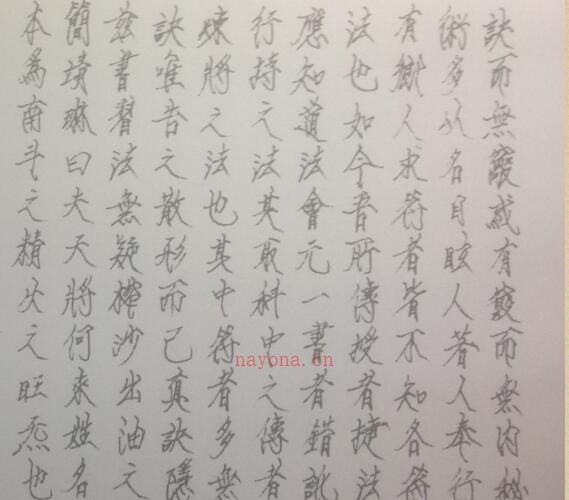 訣而無竅或有竅而無內秘
術多以名目眩人著人奉行
有鄉人求符者皆不知各符
法也如今吾所傳授者捷法
應知道法會元一書者錯訛
行持之法其取科中之傳者
煉將之法也其中符者多無
訣唯告之散形而已真訣隱
茲書法無疑榨沙出油之
簡靖琳曰夫天將何來姓名
本為南斗之精火之旺炁也
nayona.cn